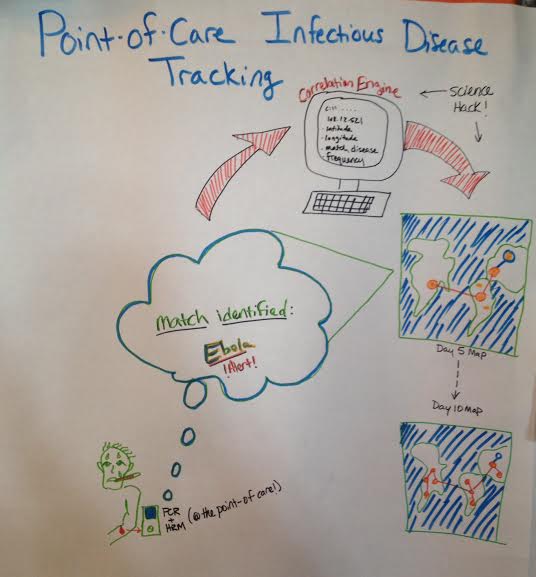 Point-of-Care Infectious Disease
Tracking
Correlation Engine
• latitude
• longitude
• match disease
frequency
← science
Hack!
match identified:
Ebola
!Alert!
Day 5 Map
Day 10 Map
PCR
+
HRM
(@the point-of care!)